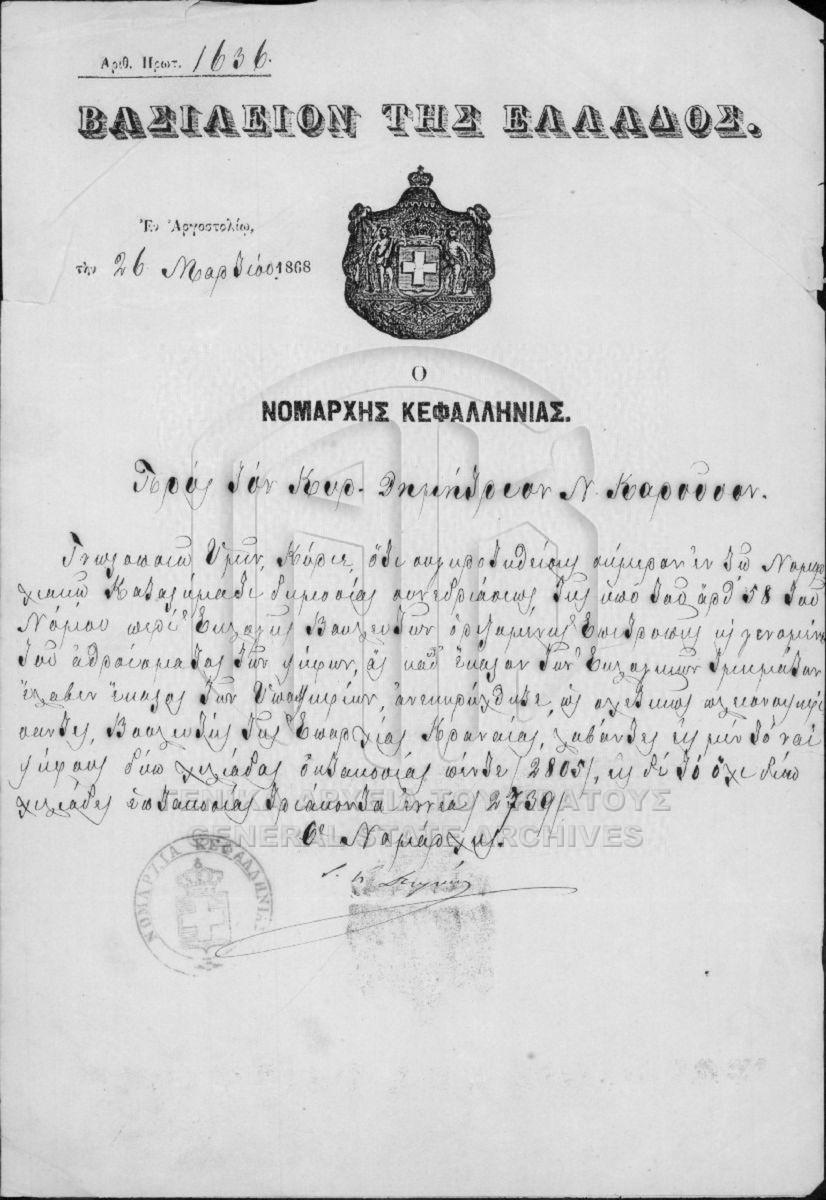 Αριθ. Πρωτ. 1636.
ΒΑΣΙΛΕΙΟΝ ΤΗΣ ΕΛΛΑΔΟΣ.
Ἐν Ἀργοστολίῳ,
τὴν 26 Μαρτίου 1868
Ο
ΝΟΜΑΡΧΗΣ ΚΕΦΑΛΛΗΝΙΑΣ.
Πρὸς τὸν Κύρ. Δημήτριον Ν. Καροῦσον.
Γνωστοποιῶ Ὑμῖν, Κύριε, ὅτι συγκροτηθείσης σήμερον ἐν τῷ Νομαρ
χιακῷ Καταστήματι δημοσίας συνεδριάσεως τῆς ὑπὸ τοῦ ἄρθ. 58 τοῦ
Νόμου περὶ Ἐκλογῆς Βουλευτῶν ὁριζομένης Ἐπιτροπῆς κ γενομένου
τοῦ ἀθροίσματος τῶν ψήφων, ἃς καθ' ἕκαστον τῶν Ἐκλογικῶν τμημάτων
ἔλαβεν ἕκαστος τῶν Ὑποψηφίων, ἀνεκηρύχθητε, ὡς σχετικῶς πλειονοψηφή
σαντες, Βουλευτὴς τῆς Ἐπαρχίας Κραναίας, λαβόντες εἰς μὲν τὸ ναὶ
ψήφους δύω χιλιάδας ὀκτακοσίας πέντε /2805/, εἰς δὲ τὸ ὄχι δύω
χιλιάδες ἑπτακοσίας τριάκοντα ἐννέα /2739/
Ὁ Νομάρχης.
ΝΟΜΑΡΧΙΑ ΚΕΦΑΛΛΗΝΙΑΣ
ΓΕΝΙΚΑ ΑΡΧΕΙΑ ΤΟΥ ΚΡΑΤΟΥΣ
GENERAL STATE ARCHIVES